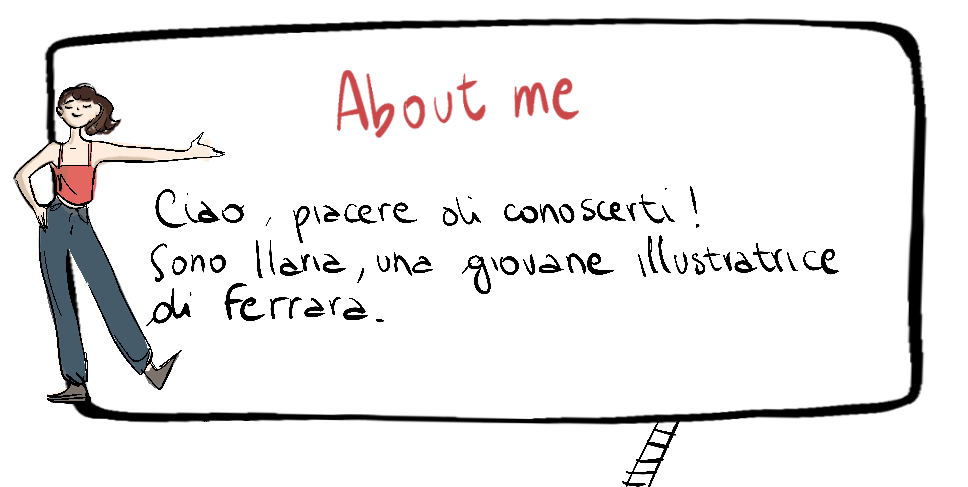 About me
Ciao, piacere di conoscerti!
Sono Ilaria, una giovane illustratrice
di Ferrara.